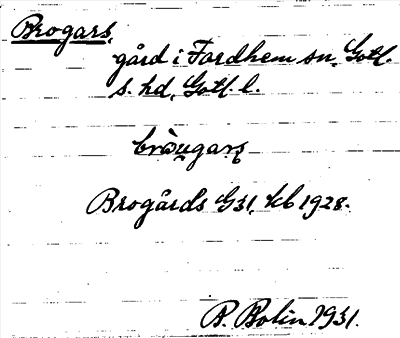 Brogars,
gård i Fardhem sn, Gotl.
s. hd, Gotl. l.
bròu̯gars
Brogårds G31, kb 1928.
B. Bolin 1931.